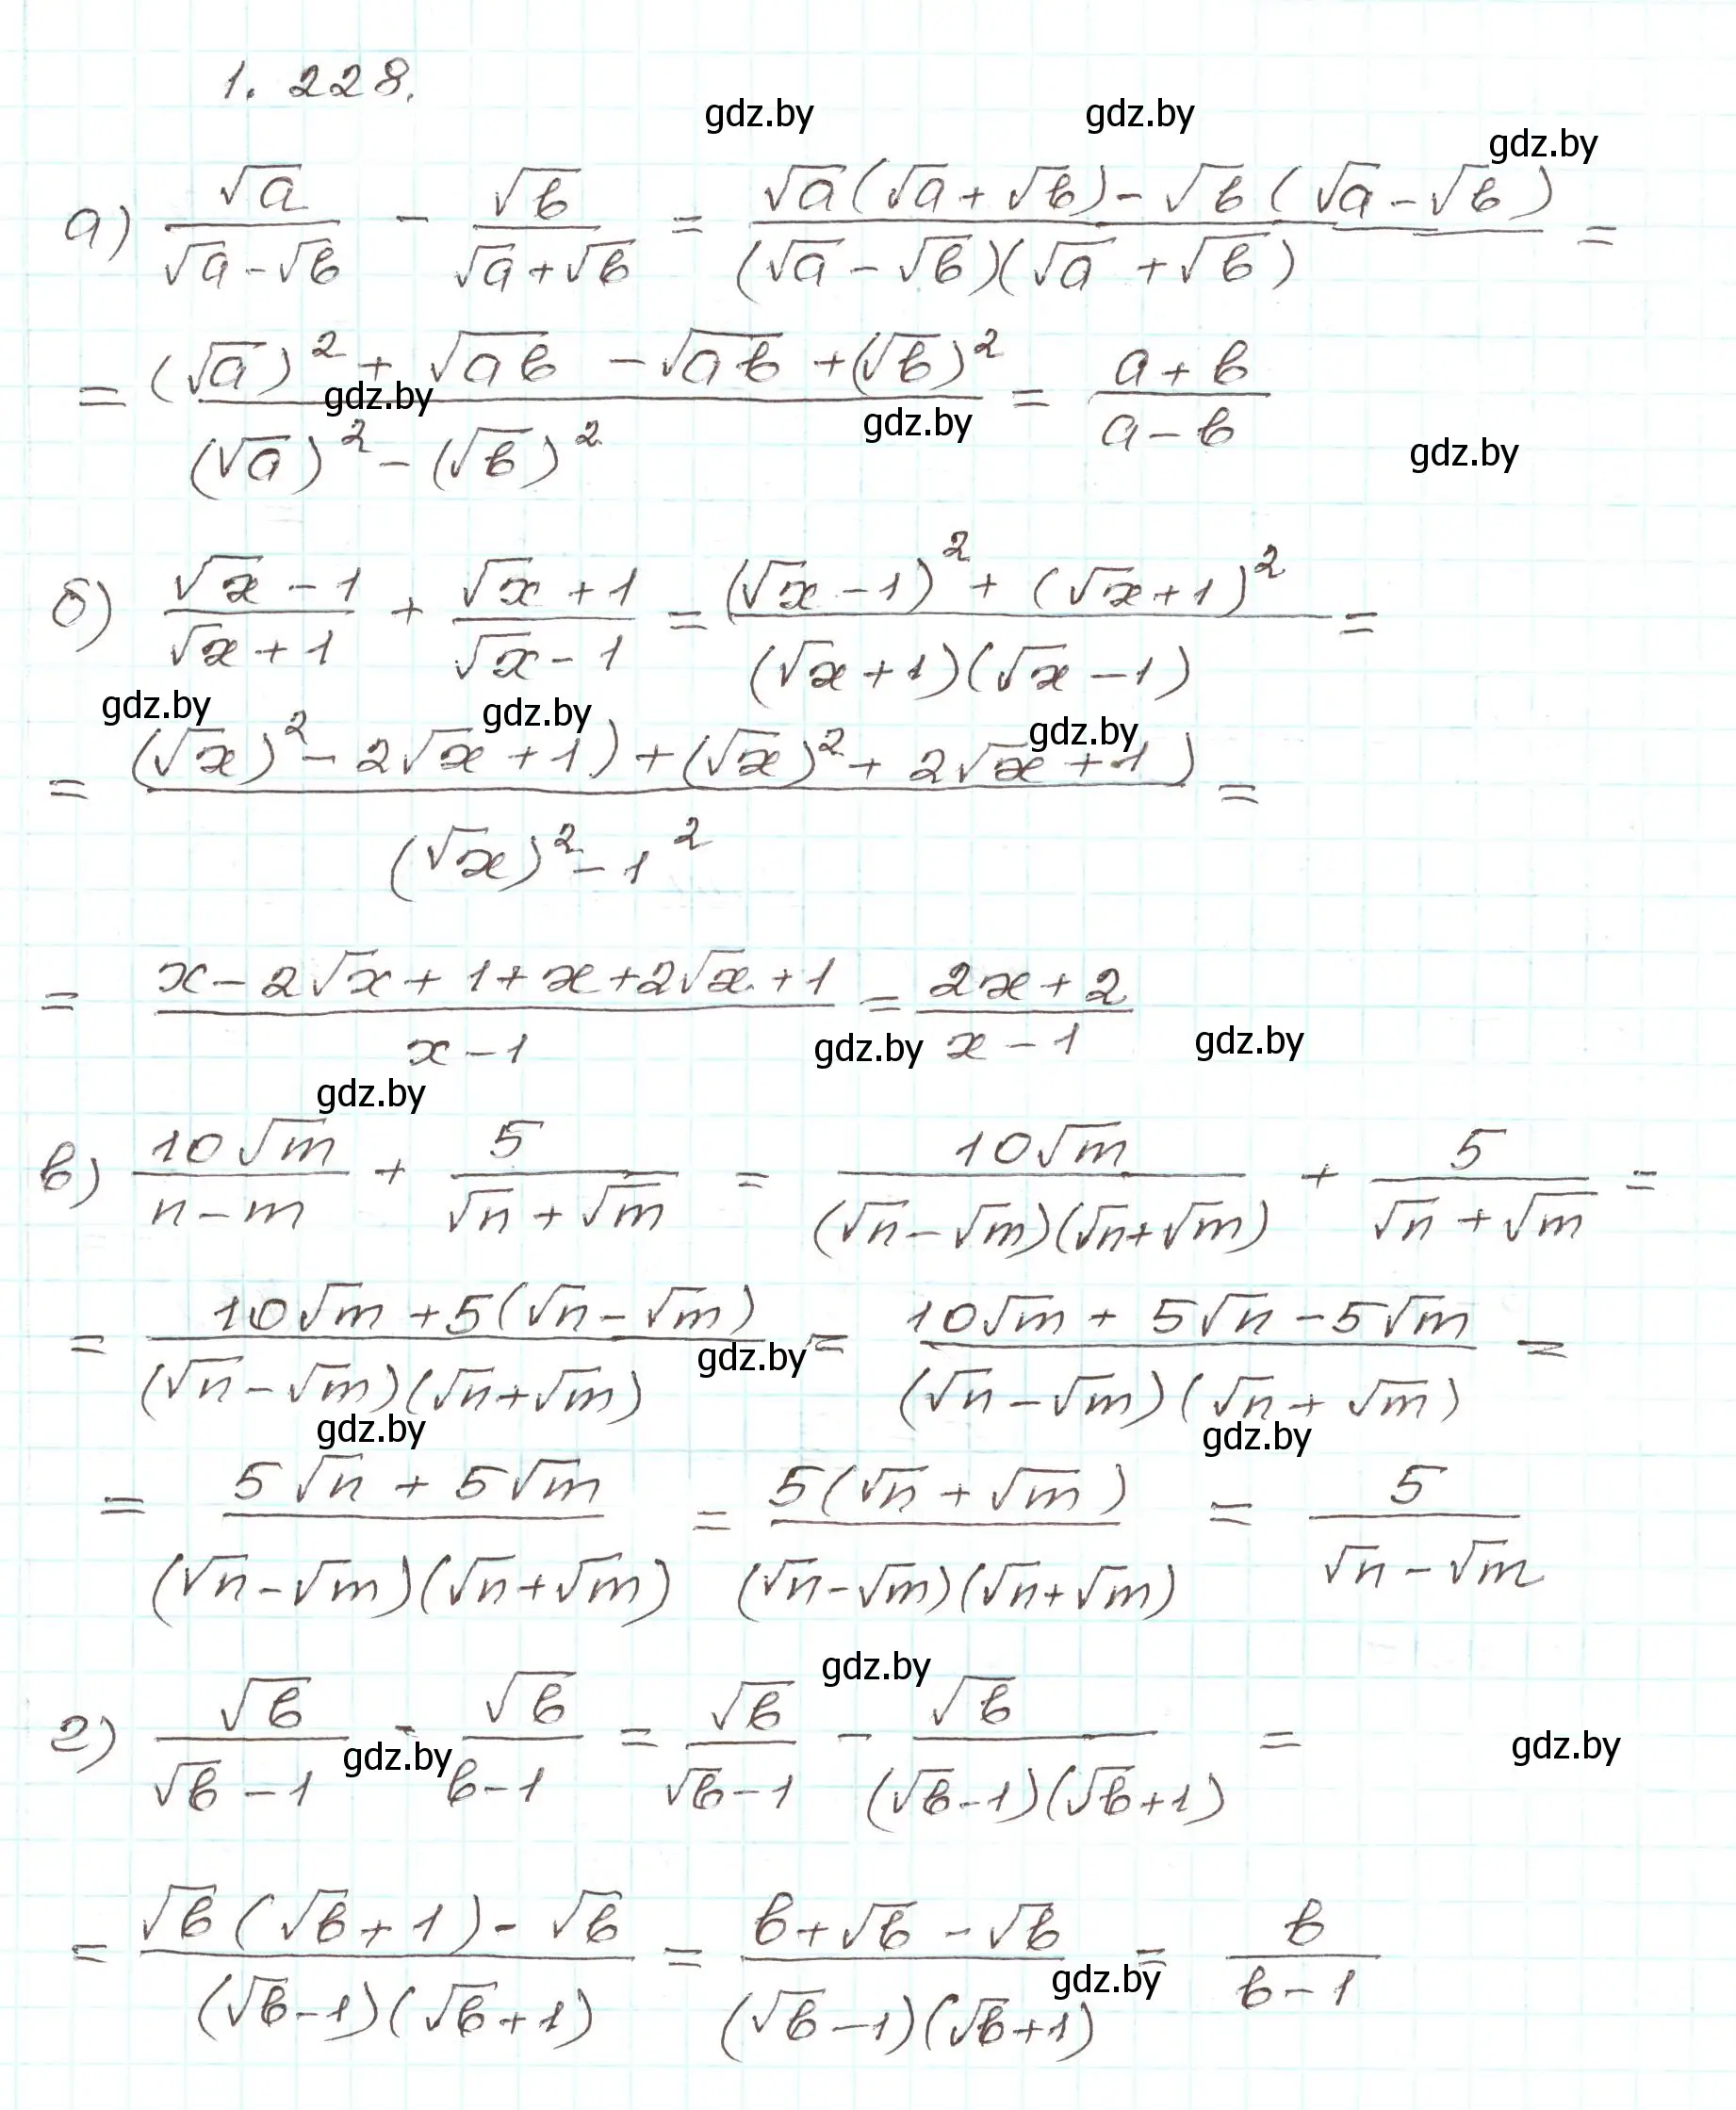 1.228.
gdz.by gdz.by gdz.by
а) √a/(√a-√b) - √b/(√a+√b) = (√a(√a+√b)-√b(√a-√b))/((√a-√b)(√a+√b)) =
= ((√a)²+√ab-√ab+(√b)²)/((√a)²-(√b)²) = (a+b)/(a-b)
gdz.by gdz.by gdz.by
б) (√x-1)/(√x+1) + (√x+1)/(√x-1) = ((√x-1)²+(√x+1)²)/((√x+1)(√x-1)) =
gdz.by gdz.by gdz.by
= ((√x)²-2√x+1)+(√x)²+2√x+1)/((√x)²-1²) =
= (x-2√x+1+x+2√x+1)/(x-1) = (2x+2)/(x-1)
gdz.by gdz.by gdz.by
в) 10√m/(n-m) + 5/(√n+√m) = 10√m/((√n-√m)(√n+√m)) + 5/(√n+√m) =
= (10√m+5(√n-√m))/((√n-√m)(√n+√m)) = (10√m+5√n-5√m)/((√n-√m)(√n+√m)) =
gdz.by gdz.by gdz.by
= (5√n+5√m)/((√n-√m)(√n+√m)) = 5(√n+√m)/((√n-√m)(√n+√m)) = 5/(√n-√m)
gdz.by
г) √b/(√b-1) - √b/(b-1) = √b/(√b-1) - √b/((√b-1)(√b+1)) =
gdz.by gdz.by
= (√b(√b+1)-√b)/((√b-1)(√b+1)) = (b+√b-√b)/((√b-1)(√b+1)) = b/(b-1)
gdz.by